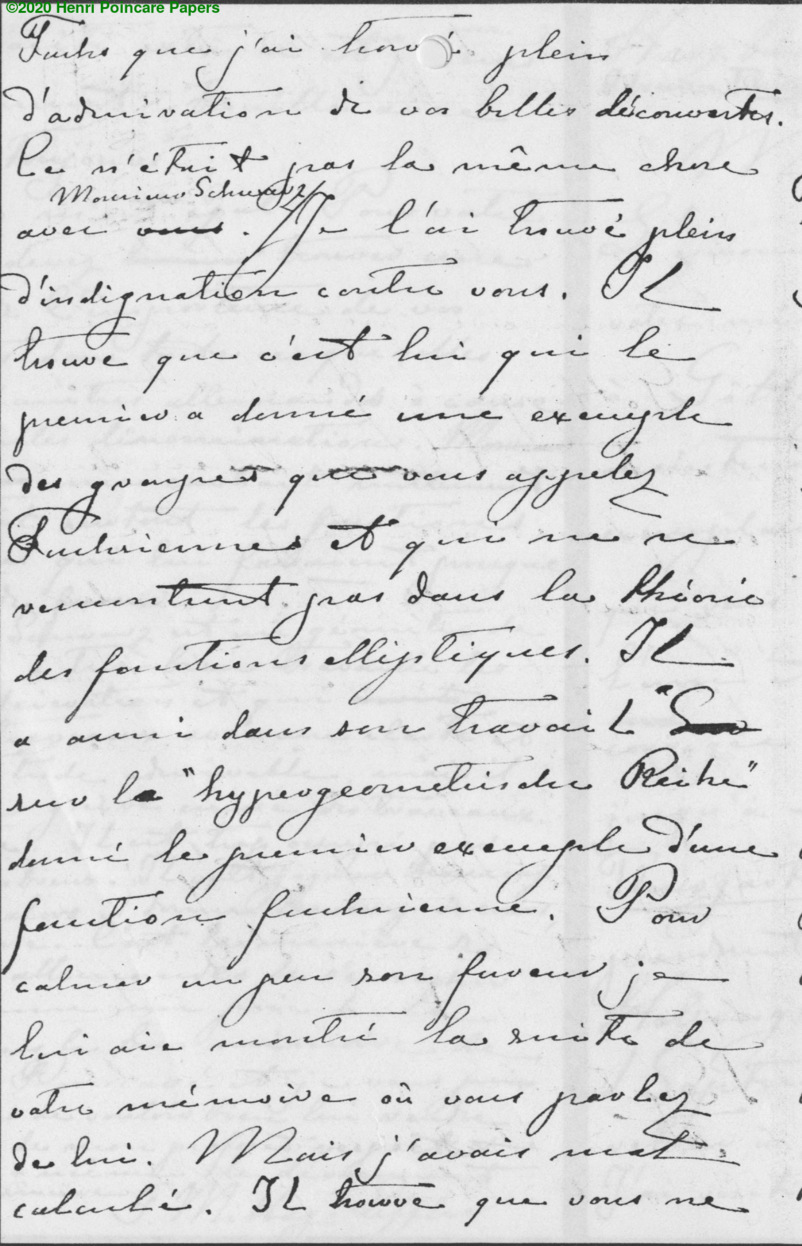 ©2020 Henri Poincare Papers
Fuchs que j'ai trouvé plein
d'admiration de vos belles découvertes.
Ce n'était pas la même chose
Monsieur Schwarz
avec vous. Je l'ai trouvé plein
d'indignation contre vous. Il
trouve que c'est lui qui le
premier a donné une exemple
des groupes que vous appelez
Fuchsiennes et qui ne se
rencontrent pas dans la théorie
des fonctions elliptiques. Il
a aussi dans son travail "
sur la "hypergeometrische Reihe"
donné le premier exemple d'une
fonction fuchsienne. Pour
calmer un peu son fureur je
lui aie montré la suite de
votre mémoire où vous parlez
de lui. Mais j'avais mal
calculé. Il trouve que vous ne